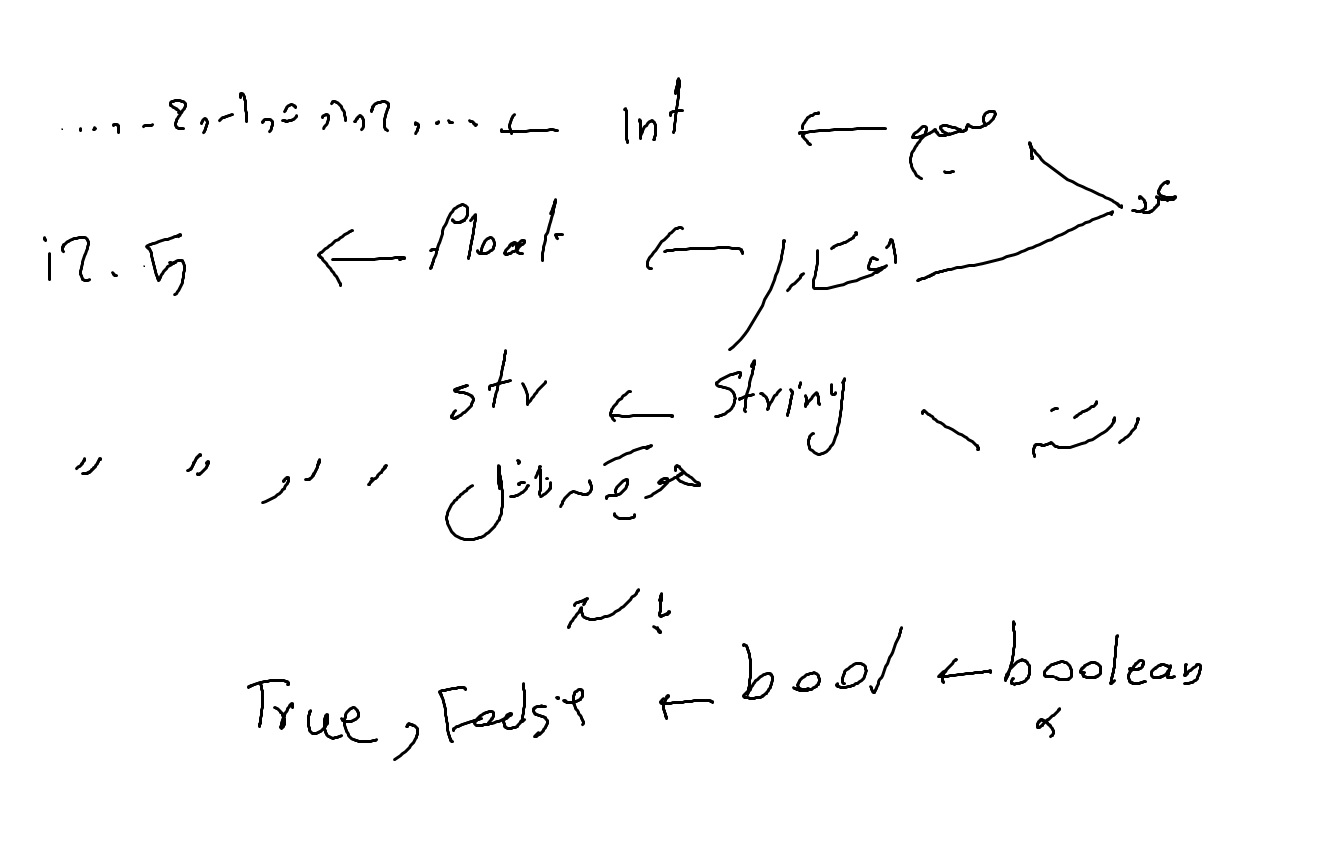 عدد
صحیح ← int ← ..., -2, -1, 0, 1, 2, ...
اعشار ← float ← 12.5
رشته \ String ← str
هر چیزی که داخل ' ' , " "
باشه
boolean ← bool ← True, False